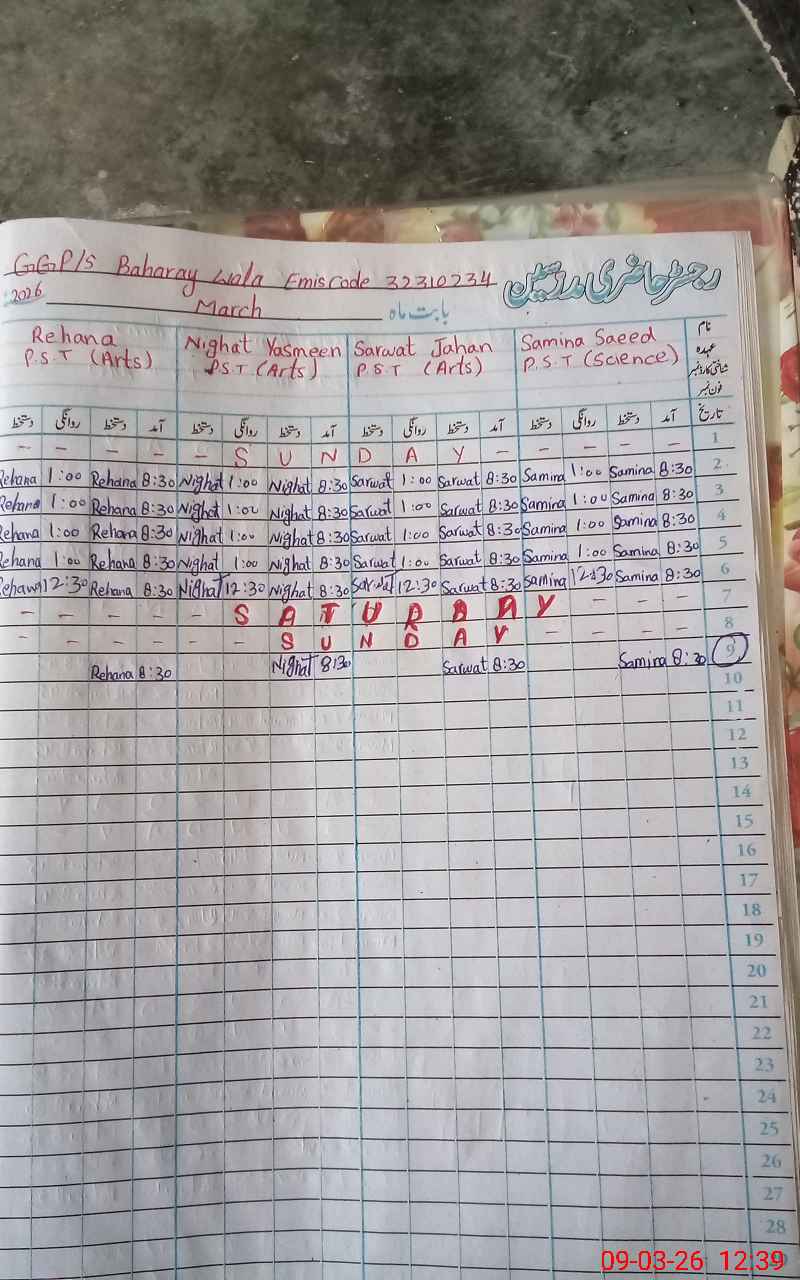 رجسٹر حاضری مدرسین
GGP/S Baharay wala Emis Code 32310234
2026 March بابت ماہ
نام
عہدہ
شناختی کارڈ نمبر
فون نمبر
Rehana Nighat Yasmeen Sarwat Jahan Samina Saeed
P.S.T (Arts) P.S.T (Arts) P.S.T (Arts) P.S.T (Science)
دستخط روانگی دستخط آمد دستخط روانگی دستخط آمد دستخط روانگی دستخط آمد دستخط روانگی دستخط آمد تاریخ
- - - - - S U N D A Y - - - - - 1
Rehana 1:00 Rehana 8:30 Nighat 1:00 Nighat 8:30 Sarwat 1:00 Sarwat 8:30 Samina 1:00 Samina 8:30 2
Rehana 1:00 Rehana 8:30 Nighat 1:00 Nighat 8:30 Sarwat 1:00 Sarwat 8:30 Samina 1:00 Samina 8:30 3
Rehana 1:00 Rehana 8:30 Nighat 1:00 Nighat 8:30 Sarwat 1:00 Sarwat 8:30 Samina 1:00 Samina 8:30 4
Rehana 1:00 Rehana 8:30 Nighat 1:00 Nighat 8:30 Sarwat 1:00 Sarwat 8:30 Samina 1:00 Samina 8:30 5
Rehana 12:30 Rehana 8:30 Nighat 12:30 Nighat 8:30 Sarwat 12:30 Sarwat 8:30 Samina 12:30 Samina 8:30 6
- - - - - S A T U R D A Y - - - 7
- - - - - - S U N D A Y - - - - 8
Rehana 8:30 Nighat 8:30 Sarwat 8:30 Samina 8:30 9
10
11
12
13
14
15
16
17
18
19
20
21
22
23
24
25
26
27
28
09-03-26 12:39